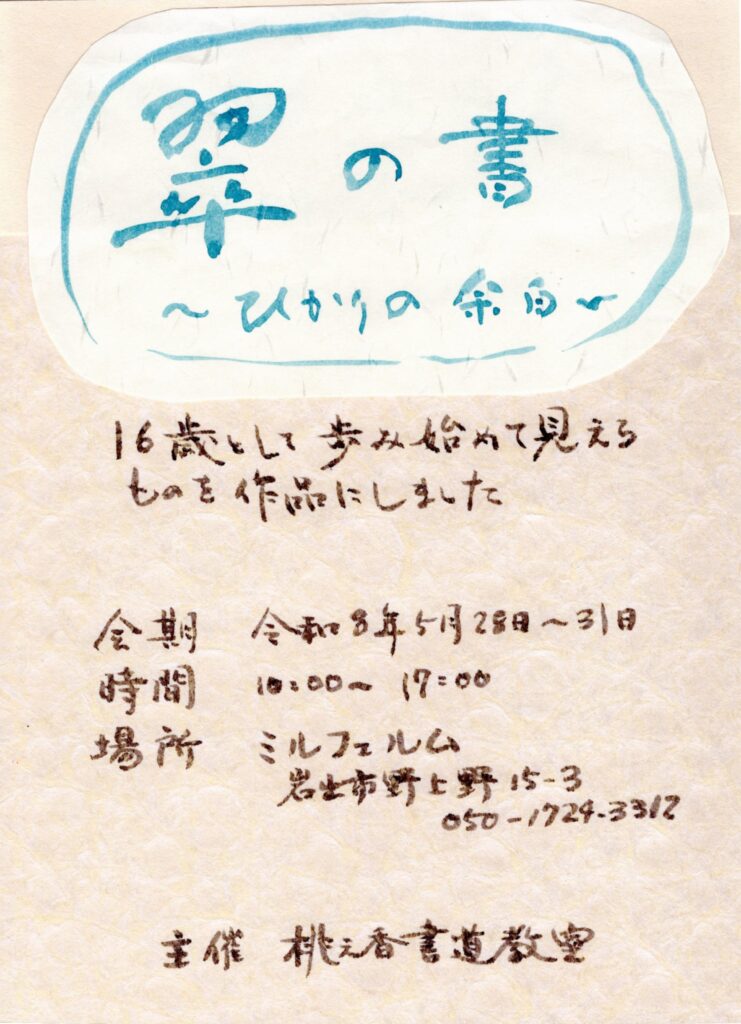 翠の書
～ひかりの余白～
16歳として歩み始めて見える
ものを作品にしました
会期　令和8年5月28日～31日
時間　10:00～17:00
場所　ミルフェルム
岩出市野上野15-3
050-1724-3312
主催　桃之香書道教室